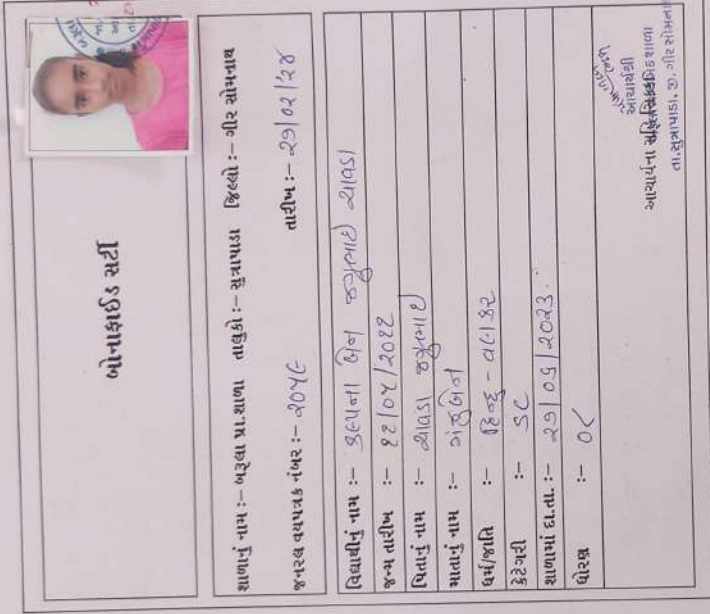 બોનાફાઈડ સર્ટી
શાળાનું નામ :– બરૂલા પ્રા.શાળા તાલુકો :– સુત્રાપાડા જિલ્લો :– ગીર સોમનાથ
જનરલ વયપત્રક નંબર :– ૨૦૫૯ તારીખ :– ૨૭/૦૨/૨૪
વિદ્યાર્થીનું નામ :– કલ્પના બેન જગુભાઈ ચાવડા
જન્મ તારીખ :– ૧૨/૦૫/૨૦૧૨
પિતાનું નામ :– ચાવડા જગુભાઈ
માતાનું નામ :– મંજુબેન
ધર્મ/જાતિ :– હિન્દુ - વણકર
કેટેગરી :– SC
શાળામાં દા.તા. :– ૨૭/૦૬/૨૦૨૩.
ધોરણ :– ૦૮
આચાર્યશ્રી
આચાર્યના
તા.સુત્રાપાડા, જી. ગીર સોમનાથ